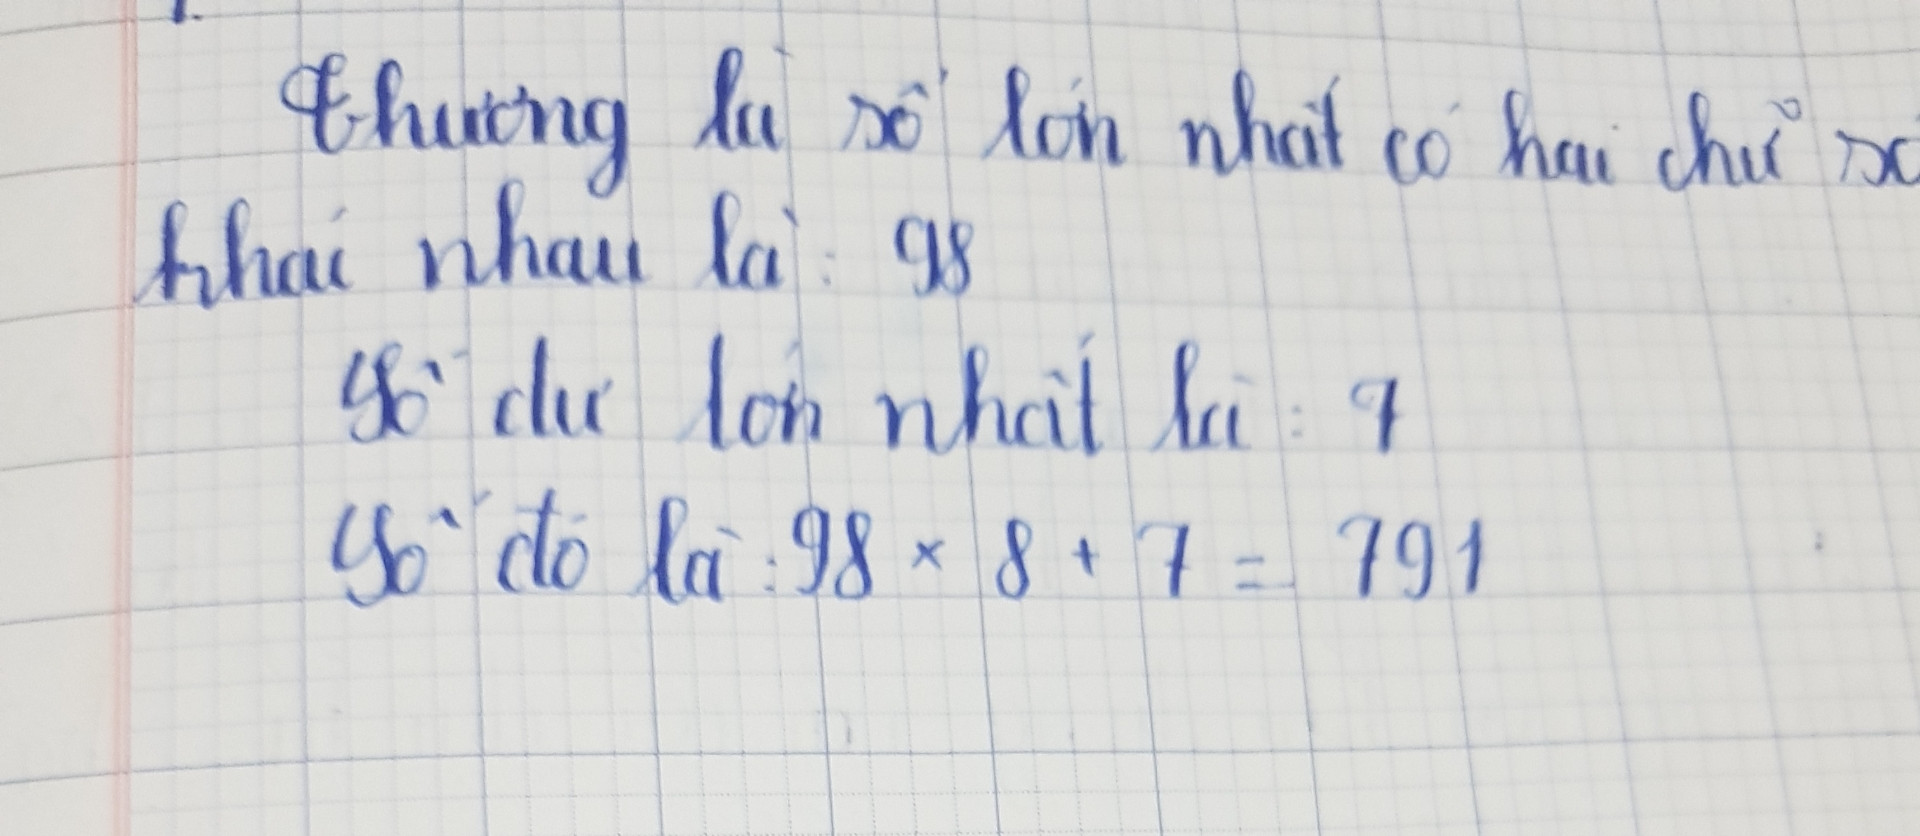 Thương là số lớn nhất có hai chữ số
khác nhau là: 98
Số dư lớn nhất là: 7
Số đó là: 98 × 8 + 7 = 791